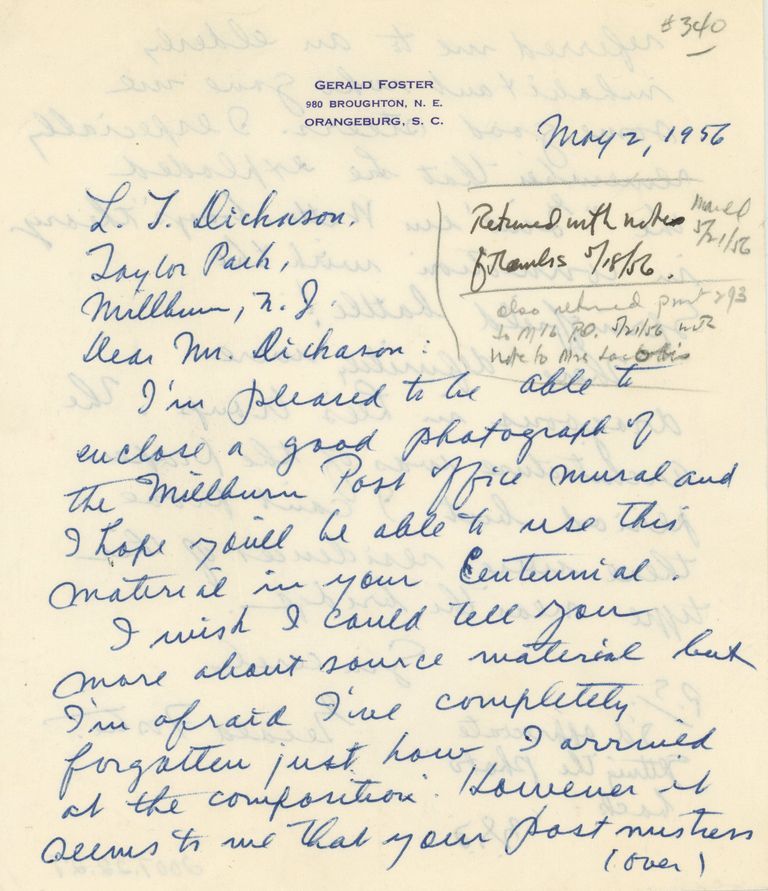 #340
GERALD FOSTER
980 BROUGHTON, N. E.
ORANGEBURG, S. C.
May 2, 1956
L. T. Dickason,
Taylor Park,
Millburn, N. J.
Returned with note
of thanks 5/18/56.
mailed
5/21/56
also returned print 293
to Mlb P.O. 5/21/56 with
note to Mrs Jacobis
Dear Mr. Dickason:
I'm pleased to be able to
enclose a good photograph of
the Millburn Post Office mural and
I hope you'll be able to use this
material in your Centennial.
I wish I could tell you
more about source material but
I'm afraid I've completely
forgotten just how I arrived
at the composition. However it
seems to me that your postmistress
(over)